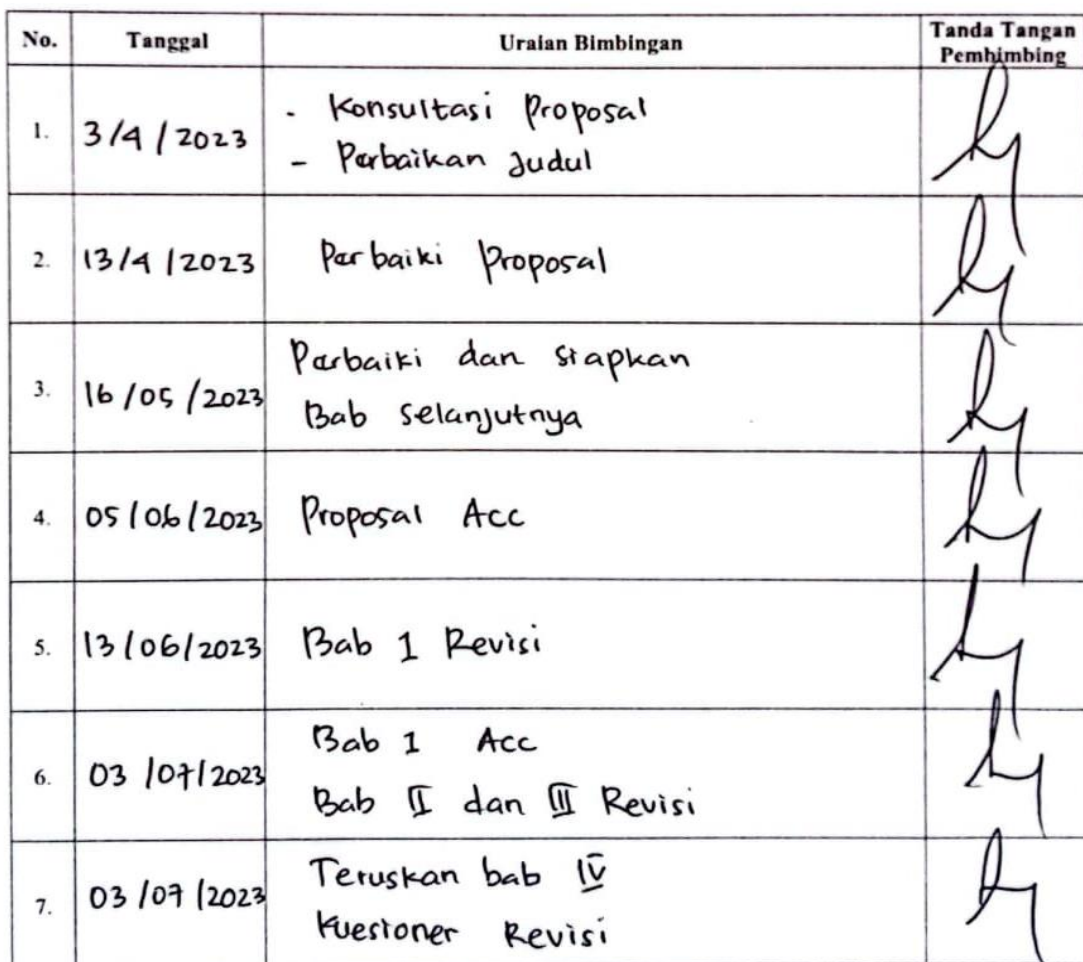 No. Tanggal Uraian Bimbingan Tanda Tangan
Pembimbing
1. 3/4/2023 - Konsultasi Proposal
- Perbaikan Judul
2. 13/4/2023 Perbaiki Proposal
3. 16/05/2023 Perbaiki dan siapkan
Bab selanjutnya
4. 05/06/2023 Proposal Acc
5. 13/06/2023 Bab 1 Revisi
6. 03/07/2023 Bab 1 Acc
Bab II dan III Revisi
7. 03/07/2023 Teruskan bab IV
Kuesioner Revisi